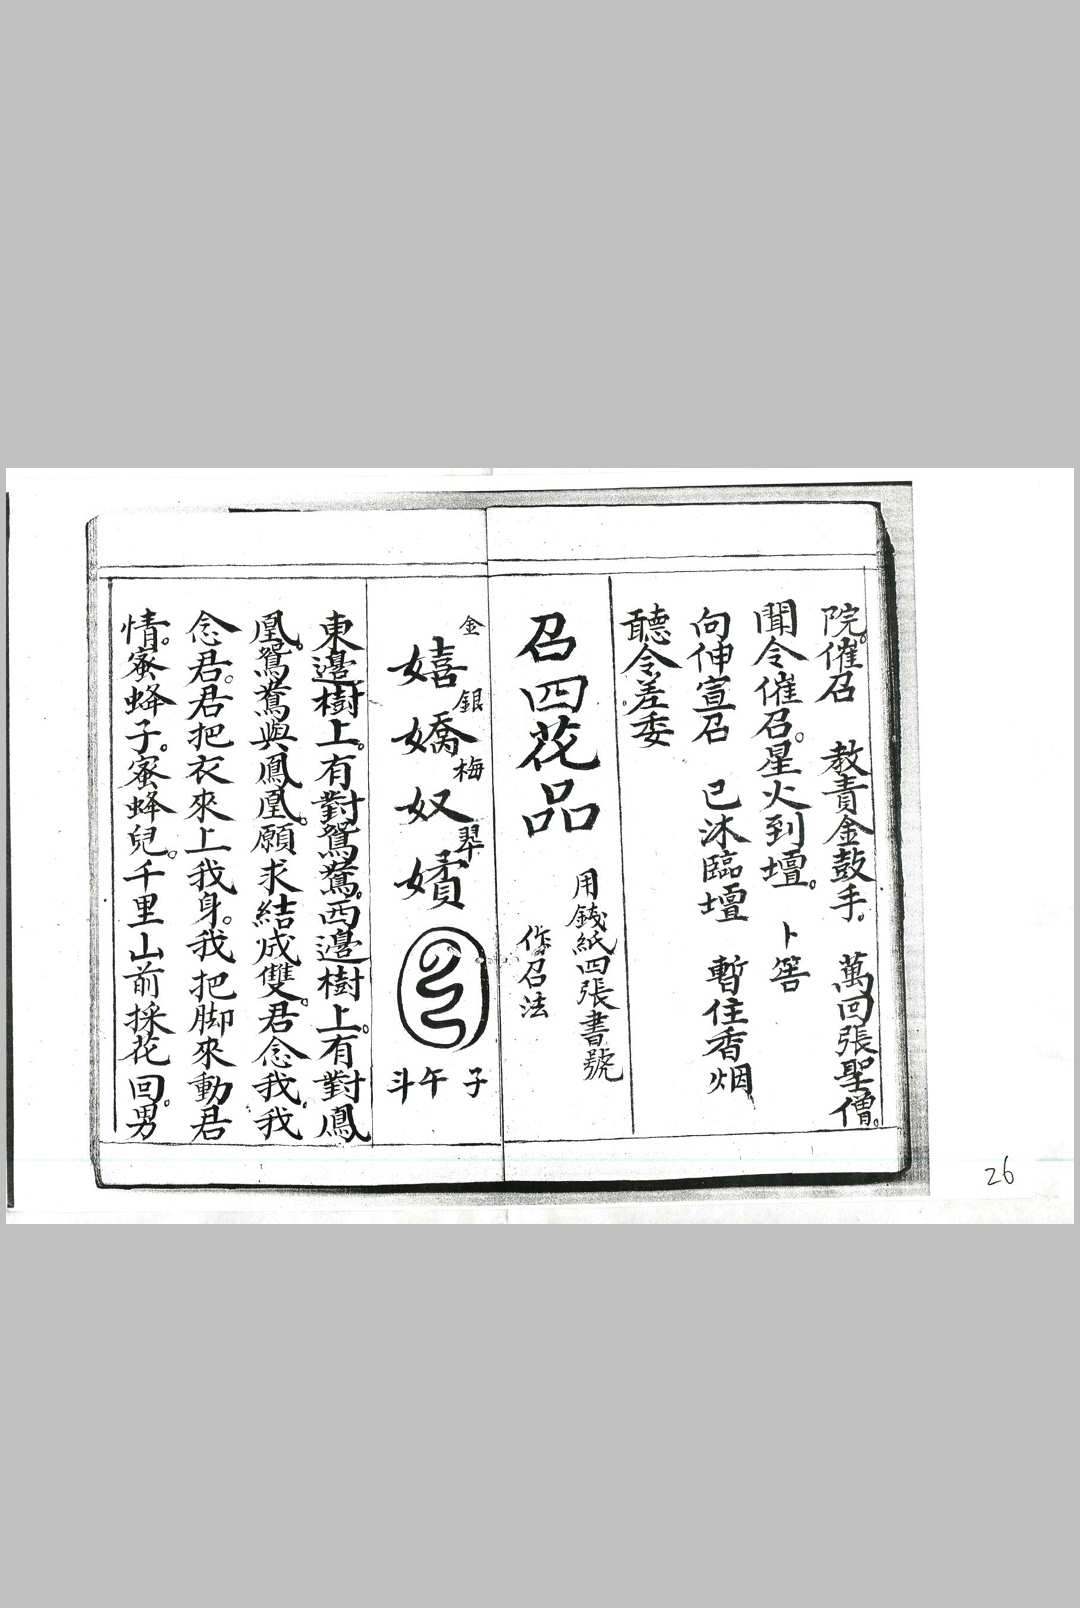 院。催召　教責金鼓手。萬回張聖僧。
聞令催召。星火到壇。卜筶
向伸宣召　已沐臨壇　暫住香烟
聽令差委
召四花品
用錢紙四張書號
作召法
金　銀　梅　翠
嬉嬌奴嬪
子午斗
東邊樹上。有對鴛鴦。西邊樹上。有對鳳
凰。鴛鴦與鳳凰。願求結成雙。君念我。我
念君。君把衣來上我身。我把脚來動君
情。蜜蜂子。蜜蜂兒。千里山前採花回。男
26